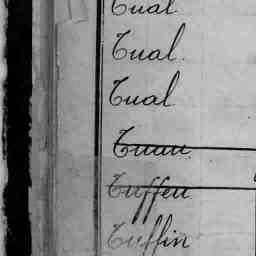 Tual
Tual.
Tual
Tuau
Tuffeu
Tuffin